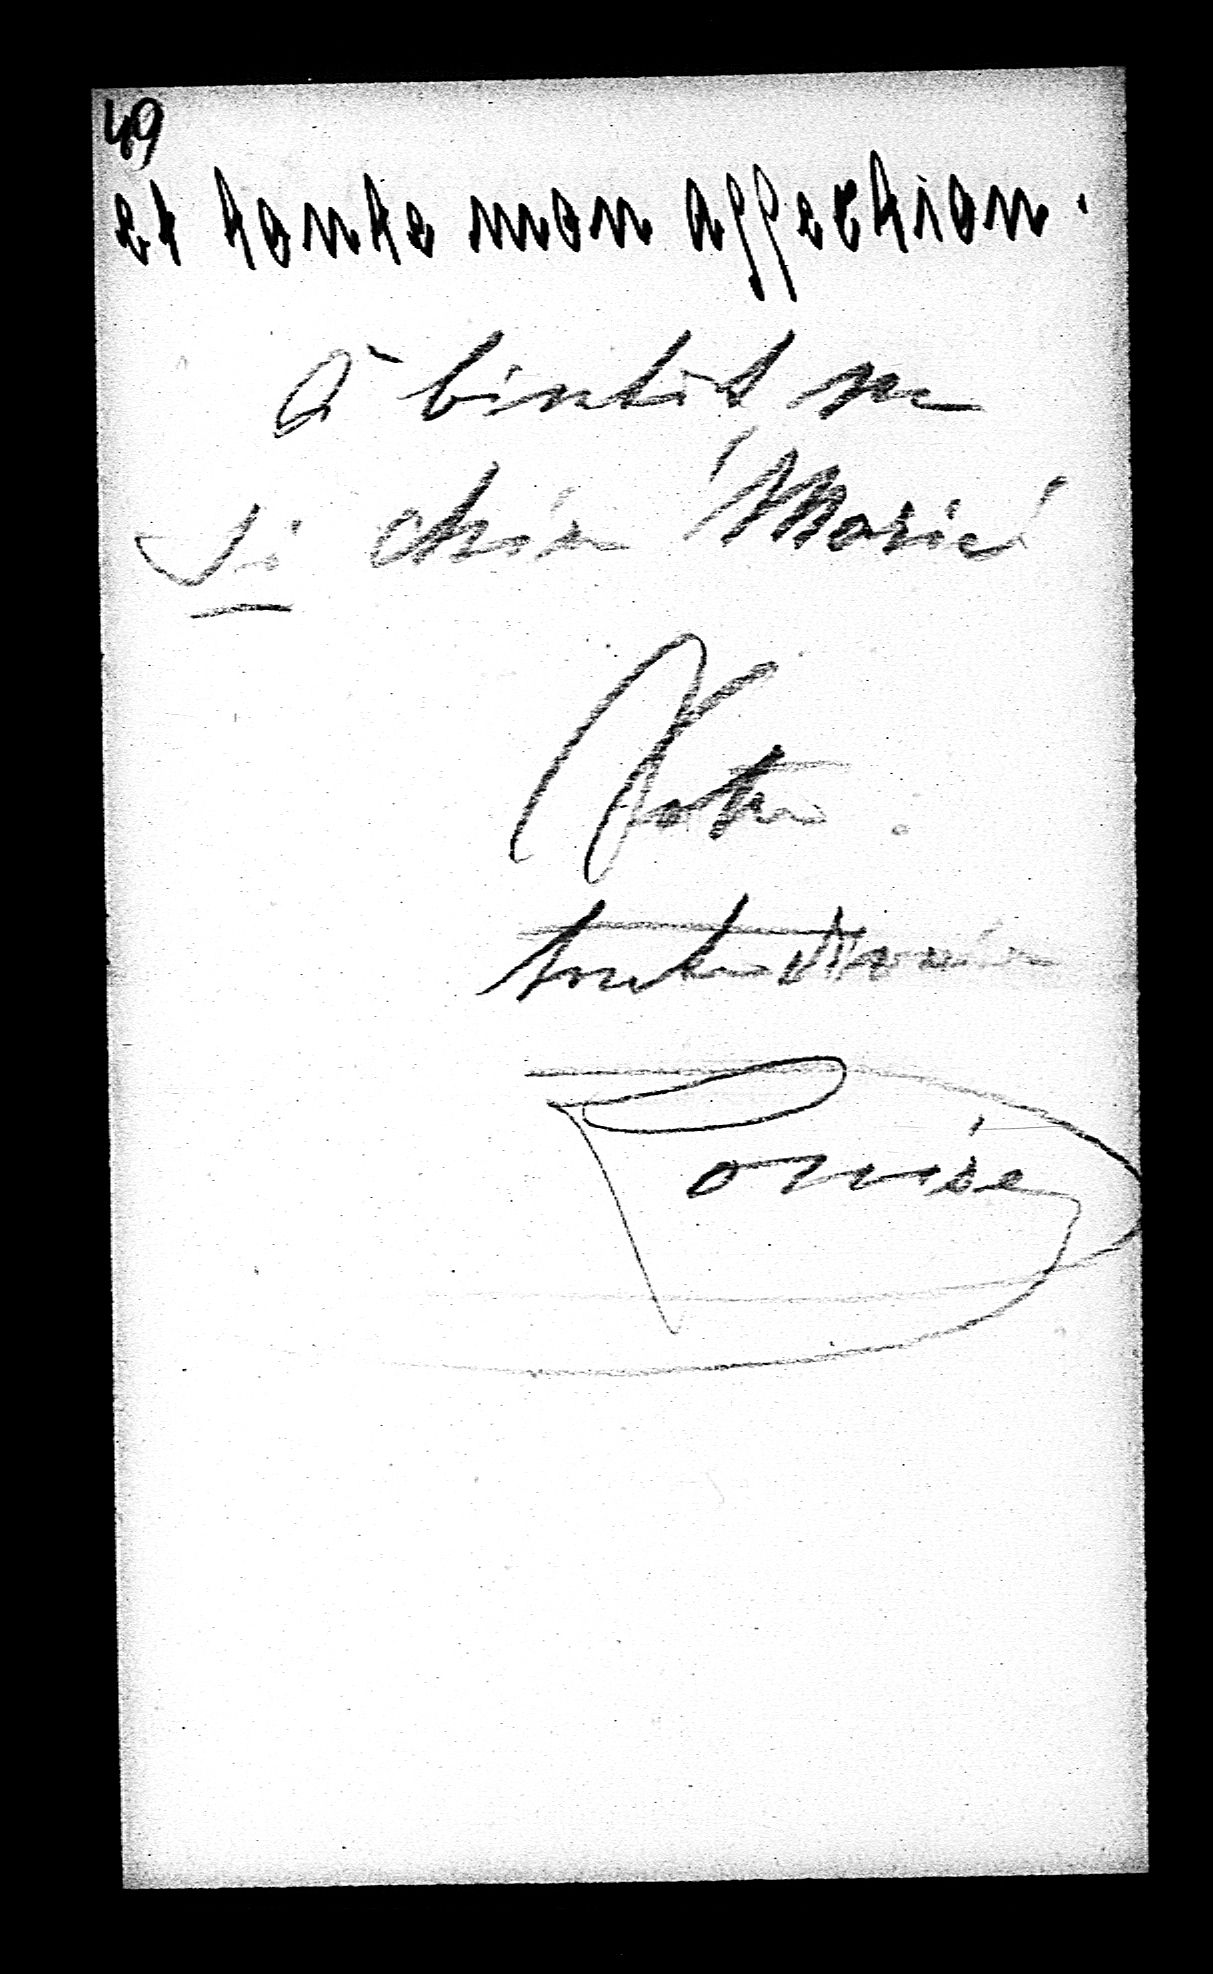 49
et toute mon affection.
À bientôt ma
si chère Marié
Votre
toute dévouée
Louise